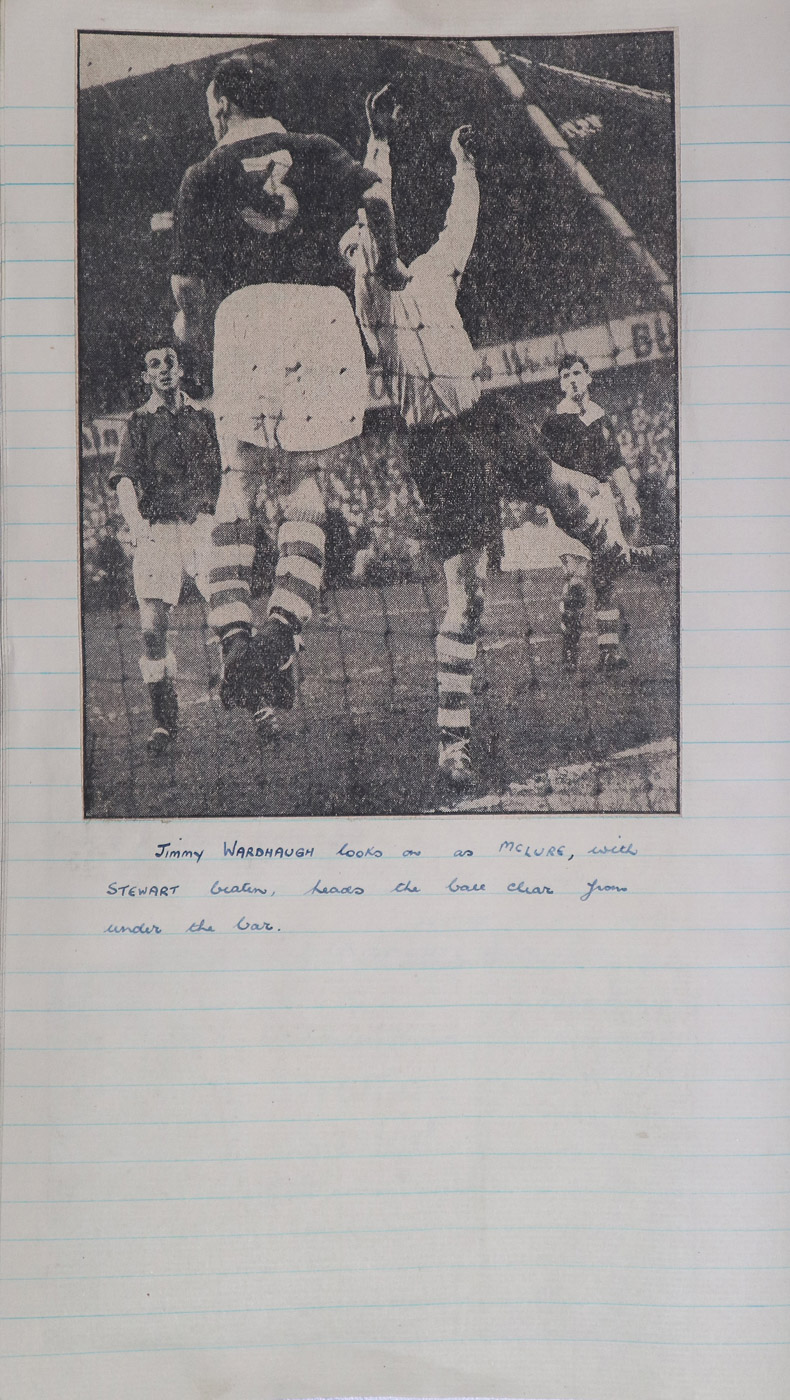 3
BU
Jimmy WARDHAUGH looks on as MCLURE, with
STEWART beaten, heads the ball clear from
under the bar.